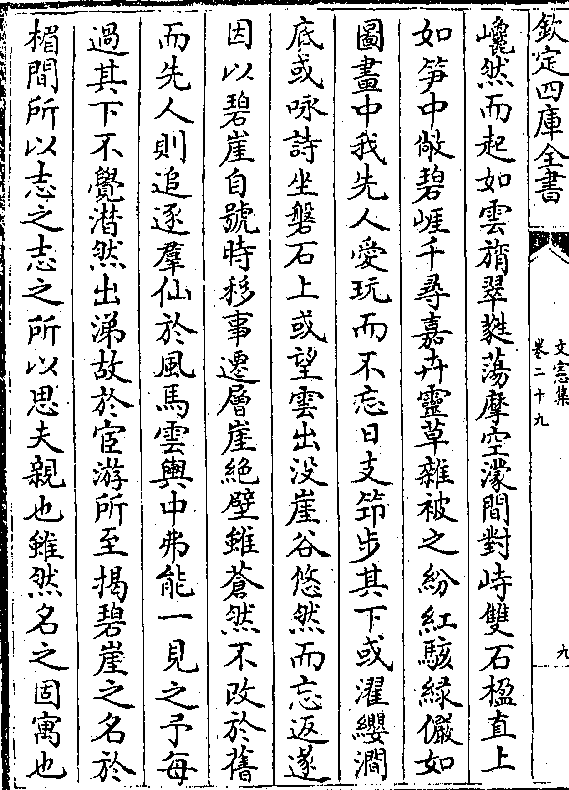 欽定四庫全書
文憲集
卷二十九
九
巉然而起如雲旓翠蕤蕩摩空濛間對峙雙石楹直上
如笋中敞碧崕千尋嘉卉靈草雜被之紛紅駭緑儼如
圖畫中我先人愛玩而不忘日支笻步其下或濯纓澗
底或咏詩坐磐石上或望雲出没崖谷悠然而忘返遂
因以碧崖自號時移事遷層崖絶壁雖蒼然不改於舊
而先人則追逐羣仙於風馬雲輿中弗能一見之予每
過其下不覺潸然出涕故於宦游所至揭碧崖之名於
楣間所以志之志之所以思夫親也雖然名之固寓也